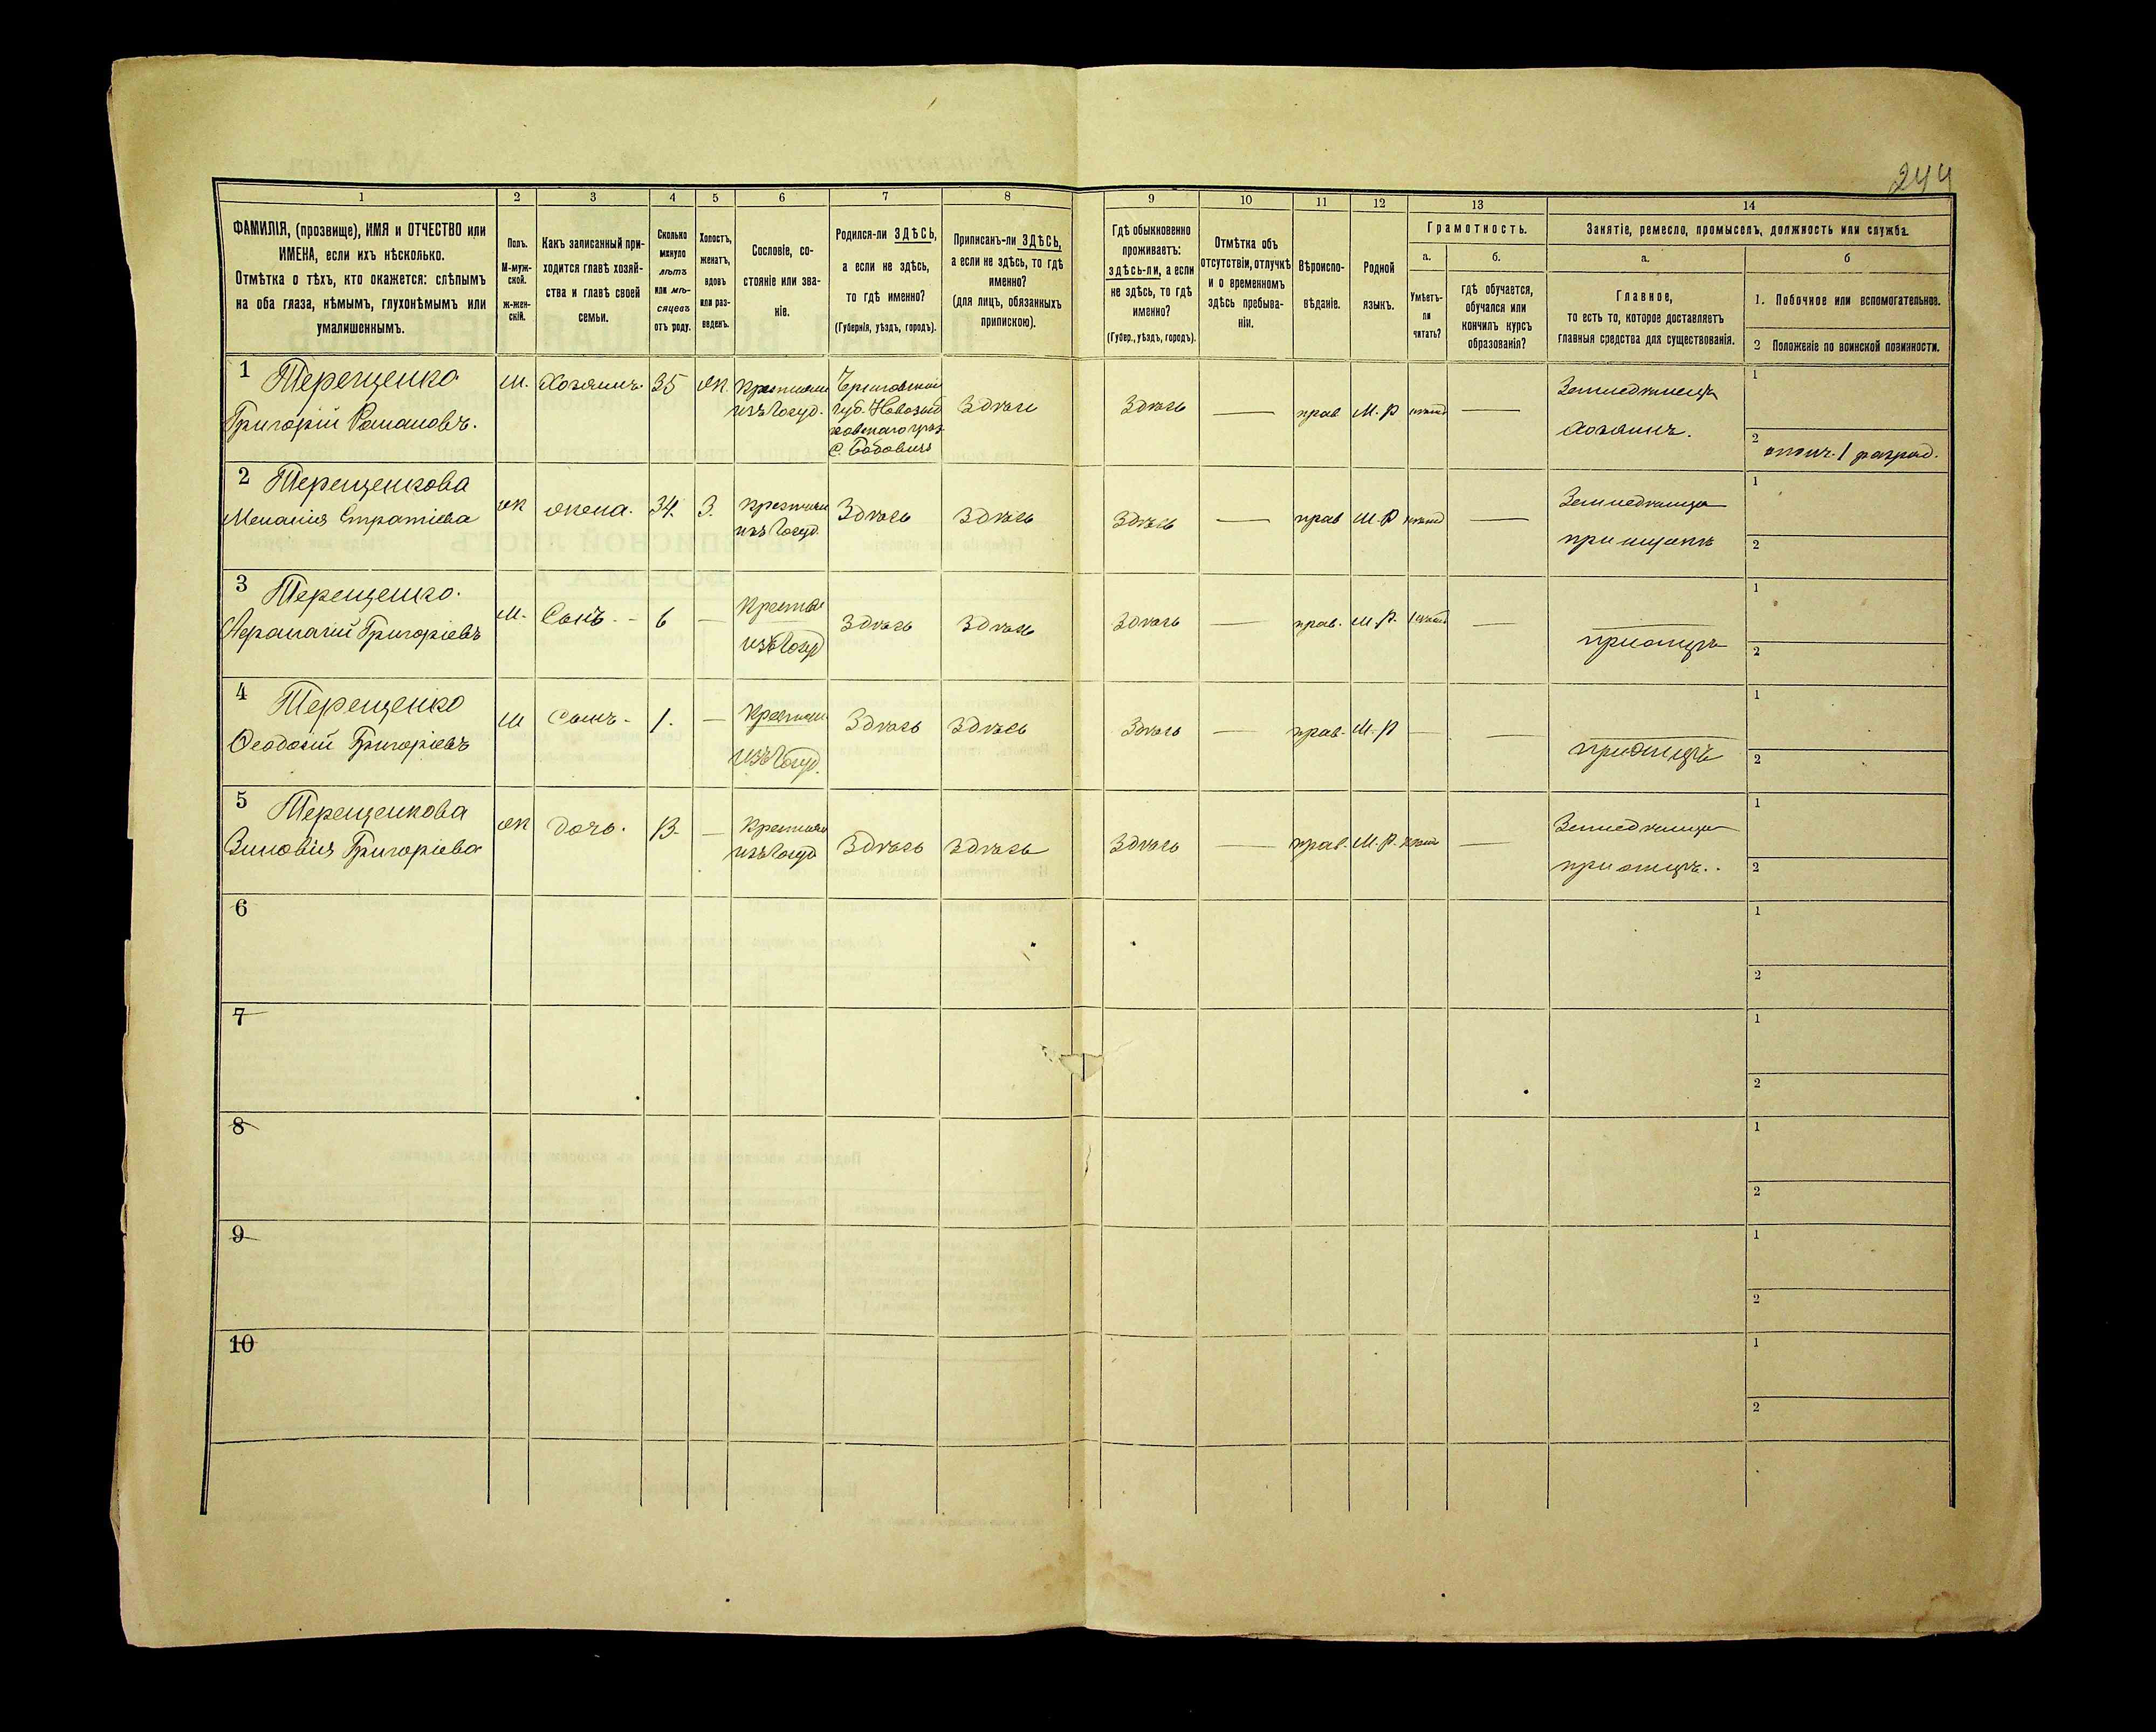 244
1 2 3 4 5 6 7 8 9 10 11 12 13 14
ФАМИЛІЯ, (прозвище), ИМЯ и ОТЧЕСТВО или
ИМЕНА, если ихъ нѣсколько.
Отмѣтка о тѣхъ, кто окажется: слѣпымъ
на оба глаза, нѣмымъ, глухонѣмымъ или
умалишеннымъ.
Полъ.
М-муж-
ской.
ж-жен-
скій.
Какъ записанный при-
ходится главѣ хозяй-
ства и главѣ своей
семьи.
Сколько
минуло
лѣтъ
или мѣ-
сяцевъ
отъ роду.
Холостъ,
женатъ,
вдовъ
или раз-
веденъ.
Сословіе, со-
стояніе или зва-
ніе.
Родился-ли ЗДѢСЬ,
а если не здѣсь,
то гдѣ именно?
(Губернія, уѣздъ, городъ).
Приписанъ-ли ЗДѢСЬ,
а если не здѣсь, то гдѣ
именно?
(для лицъ, обязанныхъ
припискою).
Гдѣ обыкновенно
проживаетъ:
здѣсь-ли, а если
не здѣсь, то гдѣ
именно?
(Губер., уѣздъ, городъ).
Отмѣтка объ
отсутствіи, отлучкѣ
и о временномъ
здѣсь пребыва-
ніи.
Вѣроиспо-
вѣданіе.
Родной
языкъ.
Грамотность.
а.
Умѣетъ-
ли
читать?
б.
гдѣ обучается,
обучался или
кончилъ курсъ
образованія?
Занятіе, ремесло, промыселъ, должность или служба.
а.
Главное,
то есть то, которое доставляетъ
главныя средства для существованія.
б
1. Побочное или вспомогательное.
2 Положеніе по воинской повинности.
1 Терещенко М. Хозяинъ 35 Ж. Крестьян Черниговской Здѣсь Здѣсь — прав М. Р — Земледѣлецъ 1
Григорій Романовъ. изъ Госуд. губ. Новозыб
ковскаго уѣз. хозяинъ. 2 ополч. 1 разряд.
С. Бобовичи
2 Терещенкова ж жена. 34. З. Крестьян Здѣсь Здѣсь Здѣсь — прав М. Р — Земледѣлица 1
Меланія Стратіева изъ Госуд. при мужѣ 2
3 Терещенко. М. Сынъ. — 6 — Крестья Здѣсь Здѣсь Здѣсь — прав. М. Р. — 1
Афанасій Григоріевъ изъ Госуд при отцѣ 2
4 Терещенко М Сынъ — 1. — Крестьян Здѣсь Здѣсь Здѣсь — прав. М. Р — — 1
Феодосій Григоріевъ изъ Госуд. при отцѣ 2
5 Терещенкова ж дочь. 13. — Крестьян Здѣсь Здѣсь Здѣсь — прав. М. Р. — Земледѣлица 1
Зиновія Григоріева изъ Госуд при отцѣ. 2
6 1
2
7 1
2
8 1
2
9 1
2
10 1
2